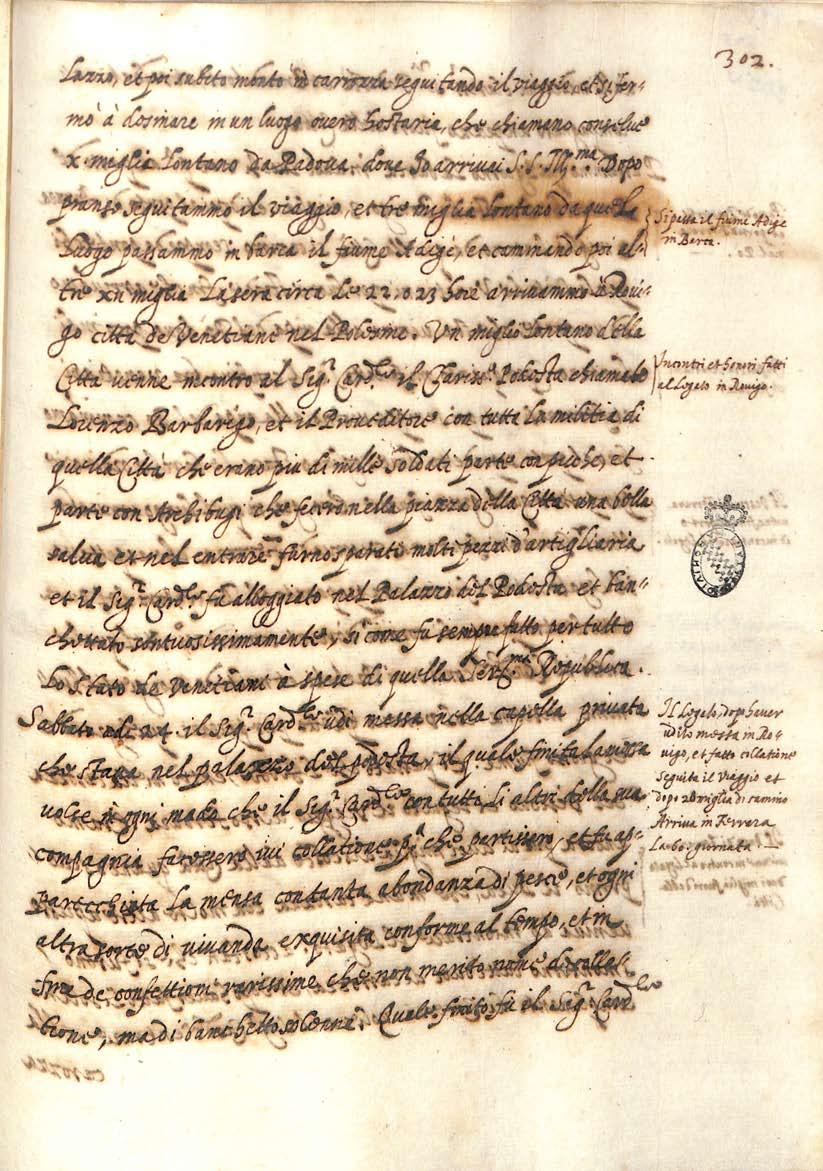 302.
lazzo, et poi subito montò in carrozza seguitando il viaggio, et si fer-
mò à desinare in un luogo overo hostaria, che chiamano conselve
x. miglia lontano da Padova. dove Io arrivai S. S. Ill.ma Dopo
pranso seguitammo il viaggio, et tre miglia lontano da quel
Luogo passammo in barca il fiume Adige, et caminando poi al-
tre xii miglia La sera circa le 22. o 23 hore arrivammo à Rovi-
go città de Venetiani nel Polesine. Un miglio lontano della
Città venne incontro al Sig.r Card.le il Clariss.o Podestà chiamato
Lorenzo Barbarigo, et il Proveditore con tutta la militia di
quella Città che erano piu di mille soldati parte con piche, et
parte con Archibugi che fecero nella piazza della Città una bella
salva et nel entrare furno sparati molti pezzi d'artigliaria
et il Sig.r Card.le fu alloggiato nel Palazzo del Podestà et ban-
chettato sontuosissimamente, si come fu sempre fatto per tutto
lo stato de Venetiani à spese di quella Ser.ma Republica.
Sabbato adi 24. il Sig.r Card.le udì messa nella capella privata
che stava nel palazzo del podestà, il quale finita la messa
volse in ogni modo che il Sig.r Card.le con tutti li altri della sua
compagnia facessero ivi collatione p.a che partissero, et fu ap-
parecchiata la mensa con tanta abondanza di pesci, et ogni
altra sorte di vivanda exquisita conforme al tempo, et in
fine de confettioni rarissime che non merito nome de colla-
tione, ma di banchetto solenne. Quale finito fu il Sig.r Card.le
carozza
Si passa il fiume Adige
in Barca.
Incontri et honori fatti
al Legato in Rovigo.
Il Legato, dop'haver
udito messa in Ro-
vigo, et fatto collatione
seguita il viaggio et
dopo 20 miglia di camino
Arriva in Ferrara
La 60. giornata.